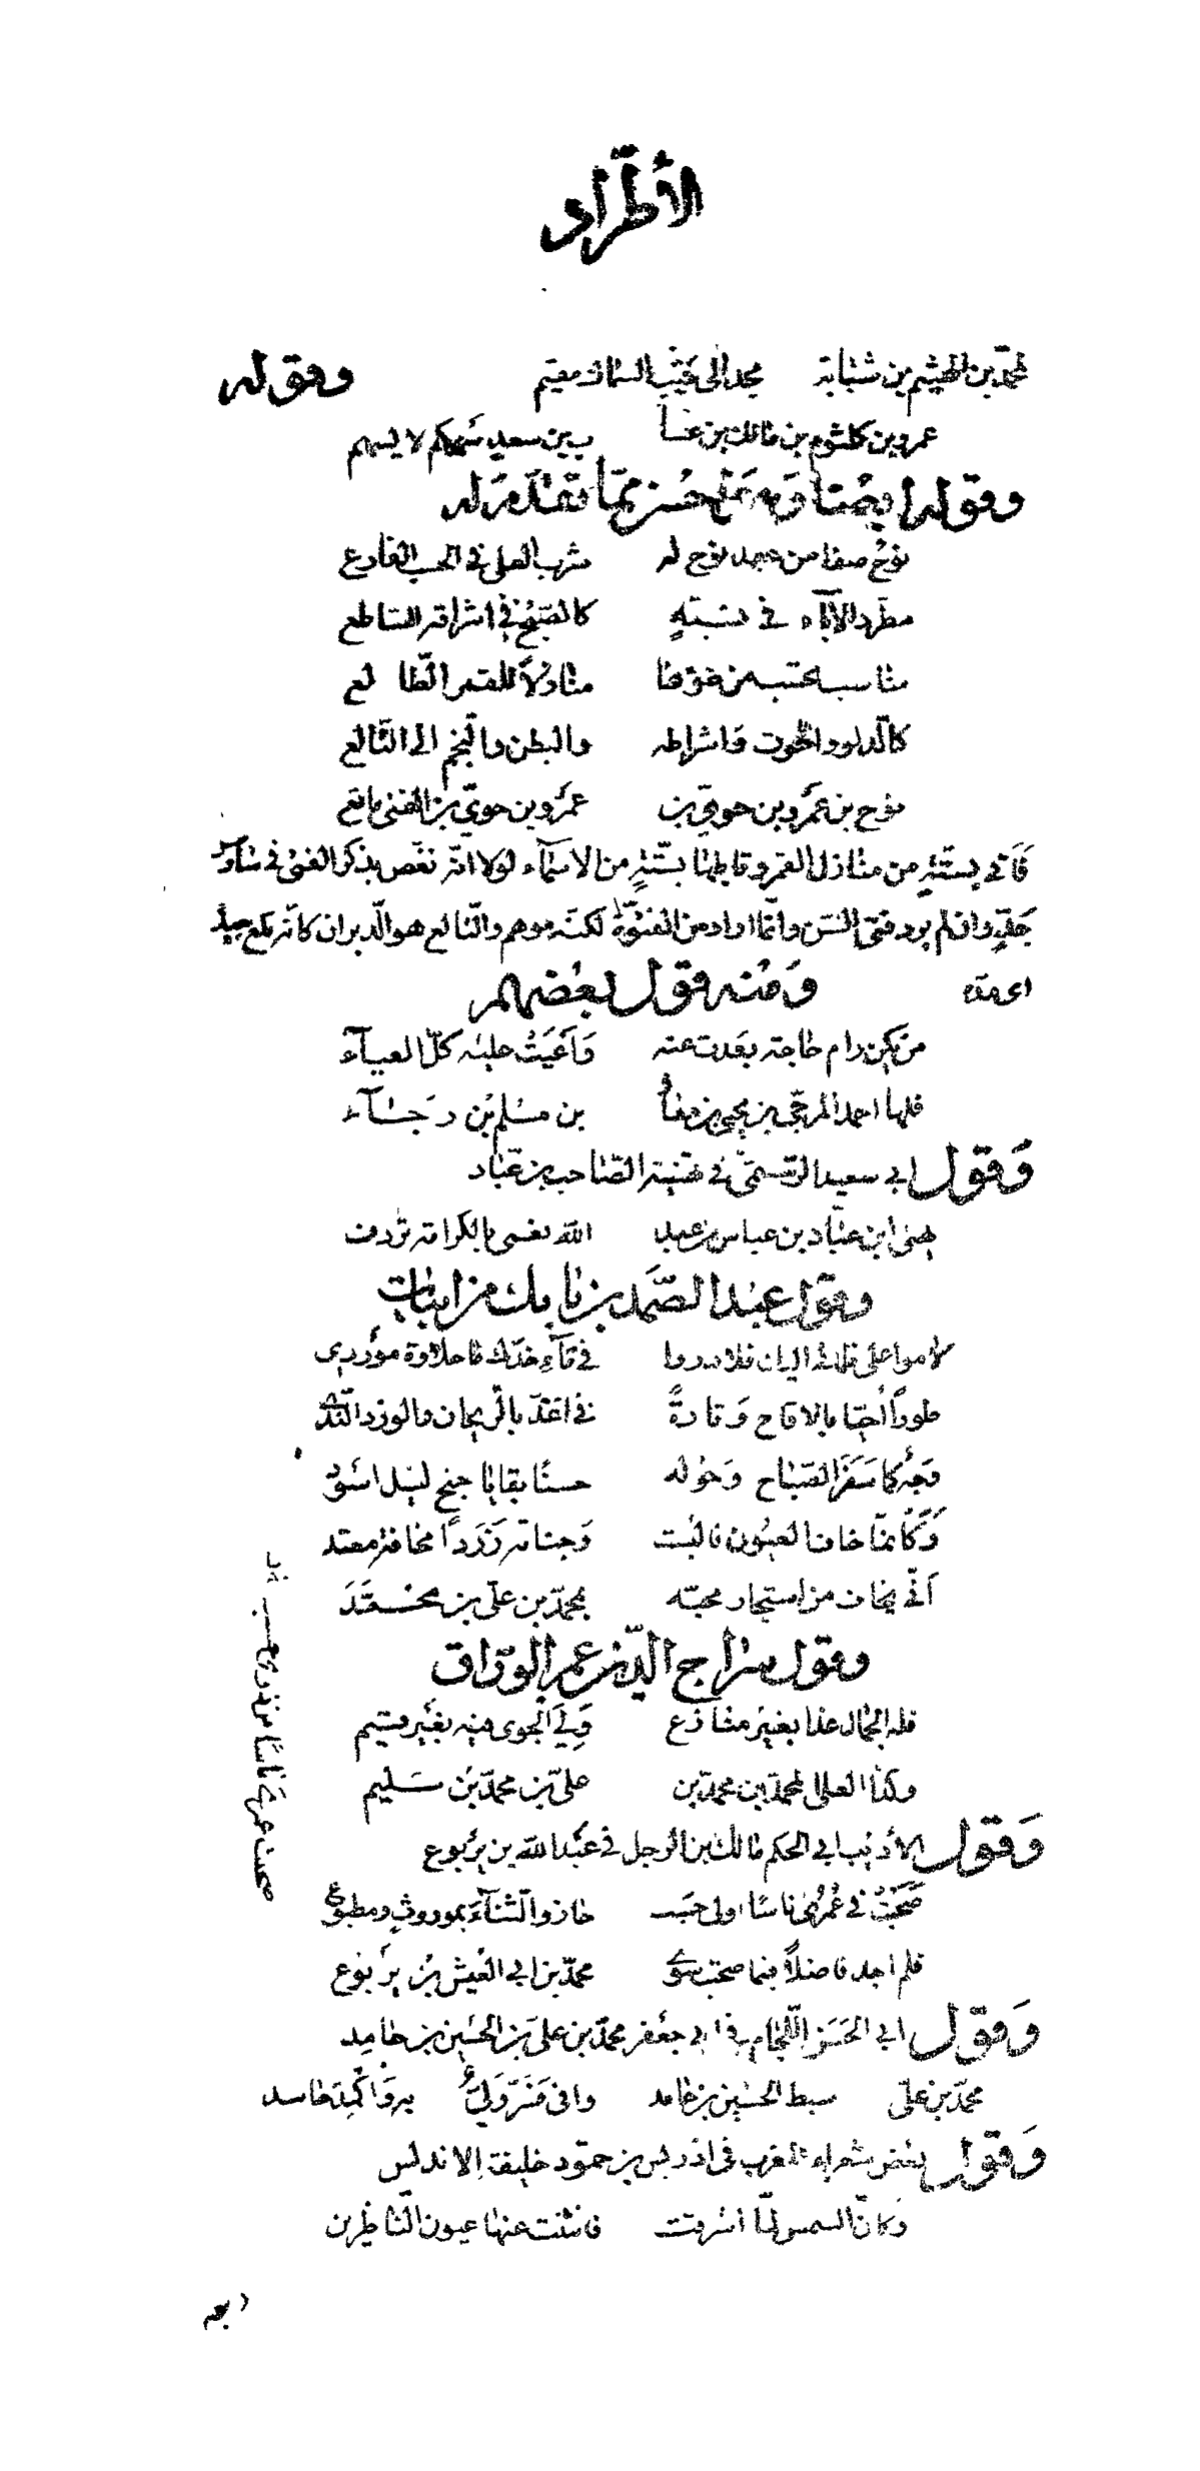 الأطّراد
لمحمّد بن الهيثم بن شبابة مجد الى جنب السماك مقيم وقوله
عمرو بن كلثوم بن مالك بن عتّا ب بن سعد سهمكم لا يسهم
وقوله ايضا وهو حسن ممّا تقدّم له
نوح صفا من عهد نوح له شرب العلى في الحسب الفارع
مطّرد الآباء في نسبة كالصّبح في اشراقه السّاطع
مناسب تحسب من ضوءها منازلاً للقمر الطّالع
كالدّلو والحوت واشراطه والبطن والنّجم الى التّالع
نوح بن عمرو بن حويّ بن عمرو بن حويّ بن الفتى مانع
فأتى بستّةٍ من منازل القمر وقابلها بستّةٍ من الاسماء لولا انّه نغّص بذكر الفتى في
جدّه وان لم يرد فتى السّن وانّما اراد من الفتوّة لكنّه موهم والتّالع هو الدّبران كانّه تلع جيده
اى مدّه ومنه قول بعضهم
من يكن رام حاجة بعدت عنه وأعيت عليه كلّ العياء
فلها احمد المرجّى بن يحيى بن معا ذ بن مسلم بن رجاء
وقول ابي سعيد الرّستميّ في تهنية الصّاحب بن عبّاد
يهنى ابن عبّاد بن عباس بن عبد الله نعمى بالكرامة تردف
وقول عبد الصّمد بن بابك من ابيات
طوراً أُحيّا بالاقاح وتارةً بالرّيحان والورد النّدى
وجه كما سفر الصّباح وحوله حسنًا بقايا جنح ليل اسود
وكأنّما خاف العيون فالبست وجناته زردًا مخافة معتد
أنّى يخاف من استجار محبّه بمحمّد بن علىّ بن محمّد
وقول سراج الدّين عمر الورّاق
فله الجمال غدا بغير منازع ولي الجوى فيه بغير قسيم
وكذا العلى لمحمّد بن محمّد بن علىّ بن محمّد بن سليم
وقول الأديب ابي الحكم مالك بن المرحل في عبد الله بن يربوع
صحبت في عمري ناسًا اولى حسب حازوا الثّناء بموروث ومطبوع
فلم اجد فاضلاً فيما صحبت سوى محمّد بن ابي العيش بن يربوع
وقول ابي الحسن اللّحّام في ابي جعفر محمّد بن على بن الحسين بن حامد
محمّد بن علىّ سبط الحسين بن حامد وافى به واكمد حاسد
وقول بعض شعراء المغرب في ادريس بن حمّود خليفة الاندلس
وكانّ الشمس لمّا اشرقت فانثنت عنها عيون النّاظرين